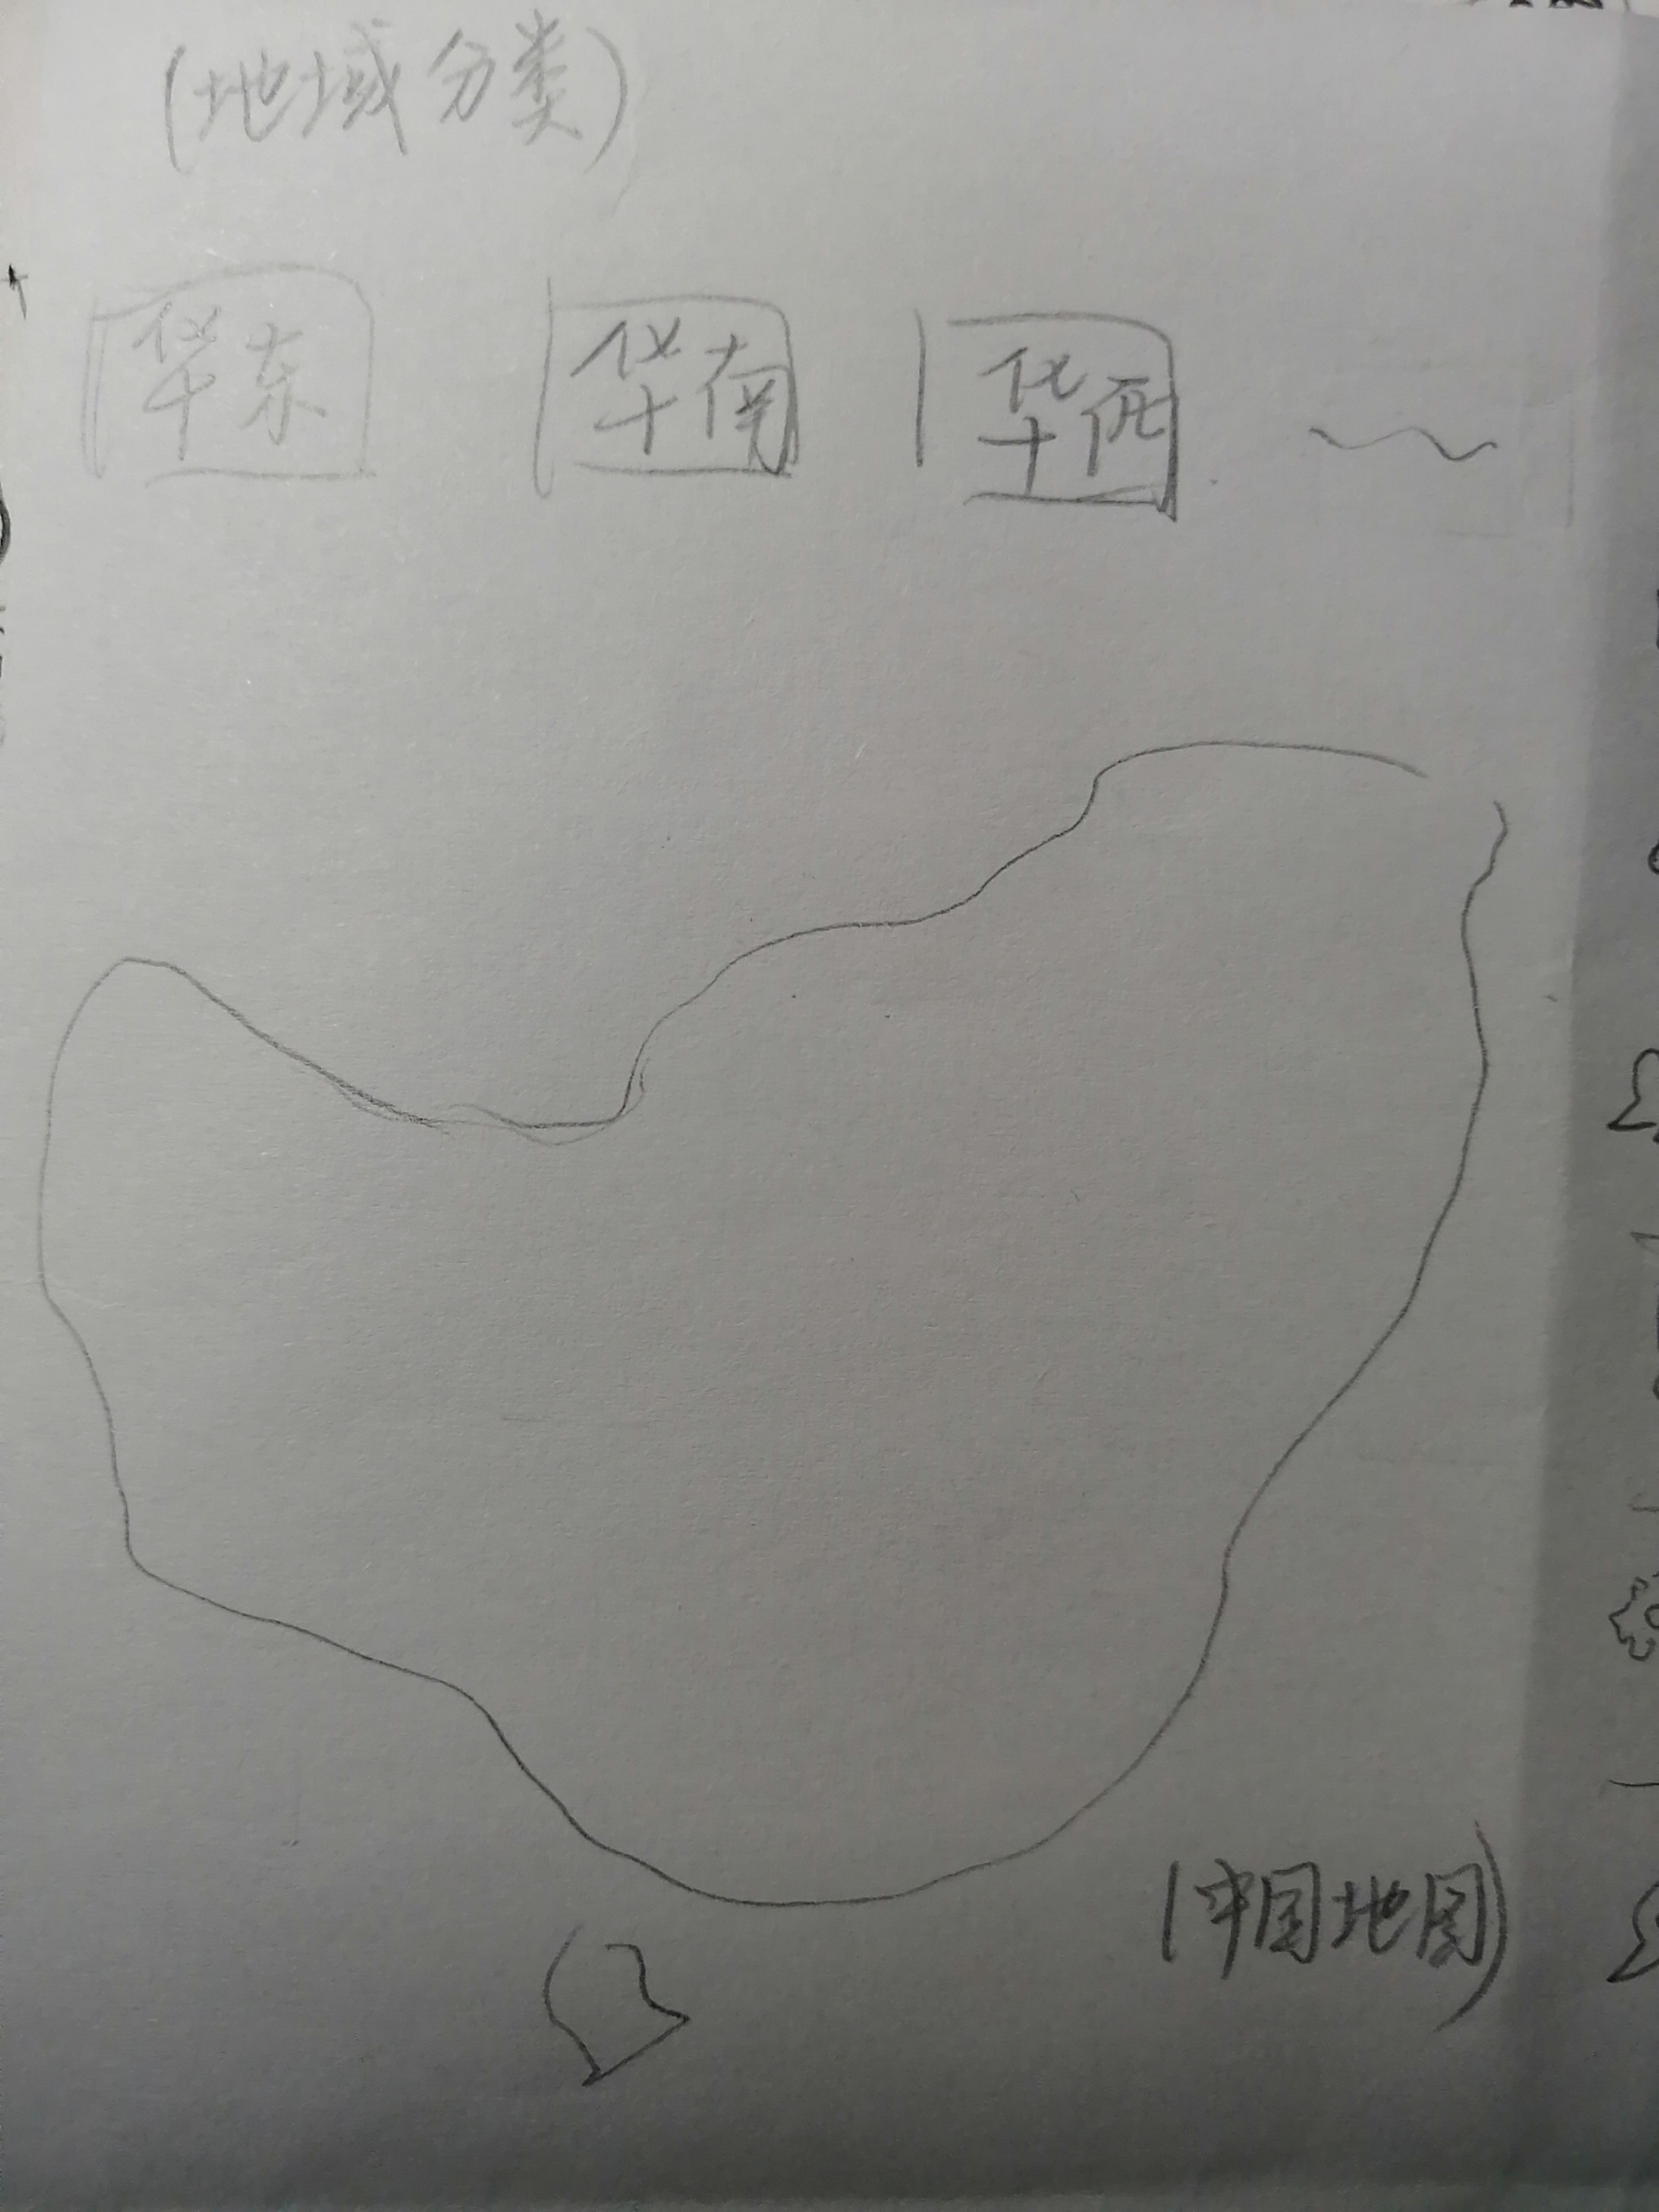 (地域分类)
华东 华南 华西
(中国地图)